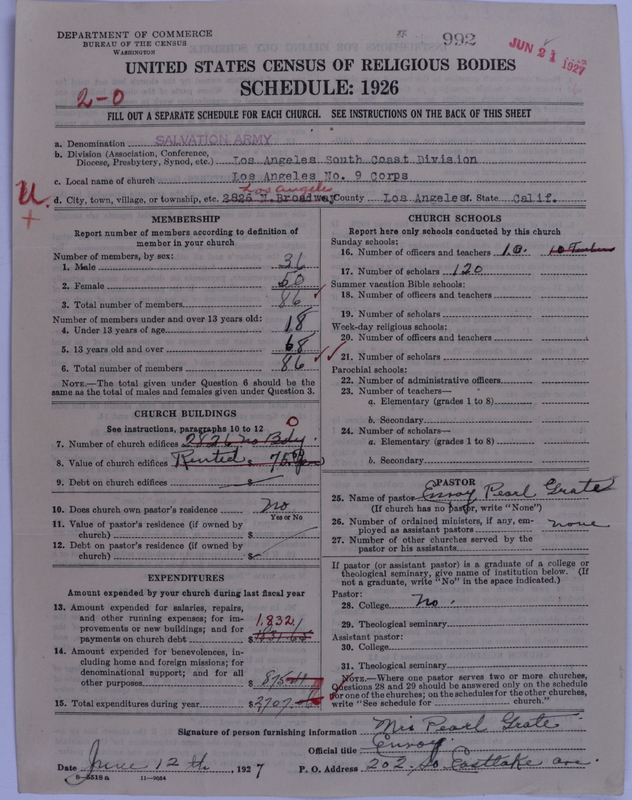 DEPARTMENT OF COMMERCE
BUREAU OF THE CENSUS
WASHINGTON
992
JUN 21 1927
UNITED STATES CENSUS OF RELIGIOUS BODIES
SCHEDULE: 1926
2-0
FILL OUT A SEPARATE SCHEDULE FOR EACH CHURCH. SEE INSTRUCTIONS ON THE BACK OF THIS SHEET
a. Denomination SALVATION ARMY
b. Division (Association, Conference, Diocese, Presbytery, Synod, etc.) Los Angeles South Coast Division
c. Local name of church Los Angeles No. 9 Corps
Los Angeles
U. d. City, town, village, or township, etc. 2826 N. Broadway County Los Angeles. State Calif.
+
MEMBERSHIP
Report number of members according to definition of
member in your church
Number of members, by sex:
1. Male 36
2. Female 50
3. Total number of members 86
Number of members under and over 13 years old:
4. Under 13 years of age 18
5. 13 years old and over 68
6. Total number of members 86
NOTE.—The total given under Question 6 should be
same as the total of males and females given under Question 3.
CHURCH BUILDINGS
See instructions, paragraphs 10 to 12
0
7. Number of church edifices 2826 No Bdy.
8. Value of church edifices Rented $ 75.00
9. Debt on church edifices $
10. Does church own pastor's residence no
Yes or No
11. Value of pastor's residence (if owned by
church) $
12. Debt on pastor's residence (if owned by
church) $
EXPENDITURES
Amount expended by your church during last fiscal year
13. Amount expended for salaries, repairs,
and other running expenses; for im-
provements or new buildings; and for 1,832
payments on church debt $
14. Amount expended for benevolences, in-
cluding home and foreign missions; for
denominational support; and for all
other purposes $ 875
15. Total expenditures during year $ 2707
CHURCH SCHOOLS
Report here only schools conducted by this church
Sunday schools:
16. Number of officers and teachers 10. 10 Teachers
17. Number of scholars 120
Summer vacation Bible schools:
18. Number of officers and teachers
19. Number of scholars
Week-day religious schools:
20. Number of officers and teachers
21. Number of scholars
Parochial schools:
22. Number of administrative officers
23. Number of teachers—
a. Elementary (grades 1 to 8)
b. Secondary
24. Number of scholars—
a. Elementary (grades 1 to 8)
b. Secondary
PASTOR
25. Name of pastor Envoy Pearl Grate
(If church has no pastor, write "None")
26. Number of ordained ministers, if any, em-
ployed as assistant pastors none
27. Number of other churches served by the
pastor or his assistants
If pastor (or assistant pastor) is a graduate of a college or
theological seminary, give name of institution below. (If
not a graduate, write "No" in the space indicated.)
Pastor:
28. College No.
29. Theological seminary
Assistant pastor:
30. College
31. Theological seminary
NOTE.—Where one pastor serves two or more churches,
Questions 28 and 29 should be answered only on the schedule
for one of the churches; on the schedules for the other churches,
write "See schedule for church."
Signature of person furnishing information Mis Pearl Grate
Official title Envoy.
Date June 12th, 1927 P. O. Address 202 So Eastlake ave.
8-5518 a 11-9684